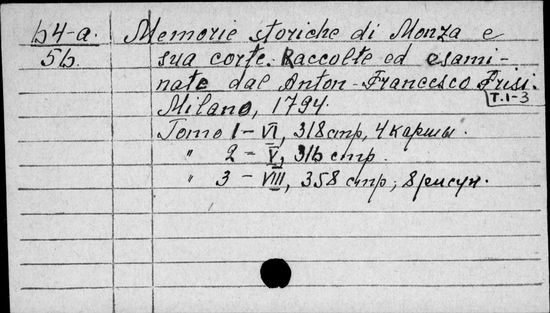 64-a. Memorie storiche di Monza e
56. sua corte. Raccolte ed esami-
nate dal Anton-Francesco Frisi.
T.1-3
Milano, 1794.
Tomo 1-VI, 318стр, 4 карты.
" 2 - V, 316 стр.
" 3 - VIII, 358 стр; 8 рисун.